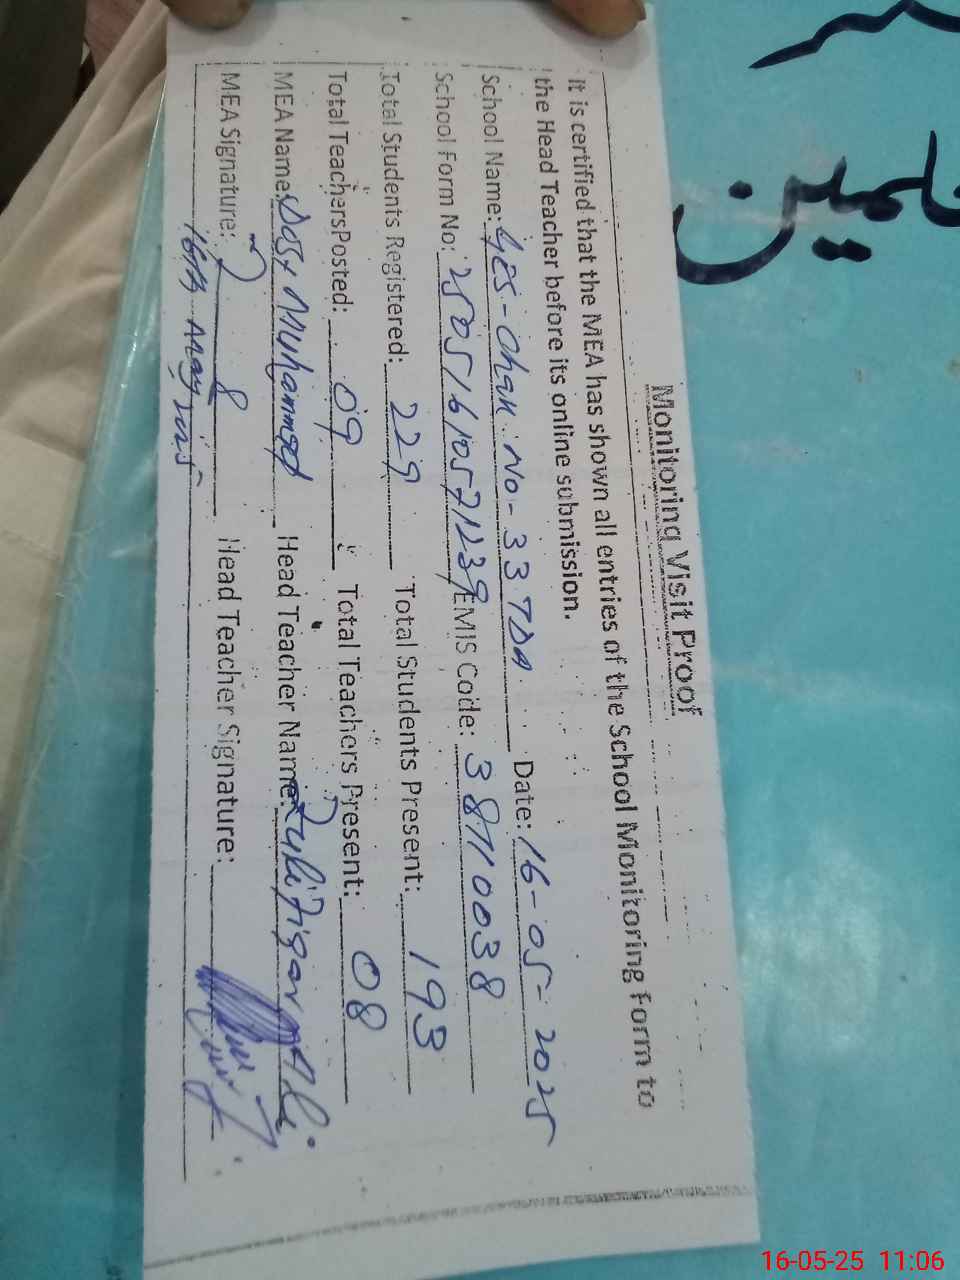 Monitoring Visit Proof
It is certified that the MEA has shown all entries of the School Monitoring Form to
the Head Teacher before its online submission.
School Name: GES-Chak No-33 TDA Date: 16-05-2025
School Form No: EMIS Code: 38710038
Total Students Registered: 229 Total Students Present: 193
Total TeachersPosted: 09 Total Teachers Present: 08
MEA Name: Dost Muhammad Head Teacher Name: Zulifiqar Ali
MEA Signature: Head Teacher Signature:
16th May 2025
16-05-25 11:06